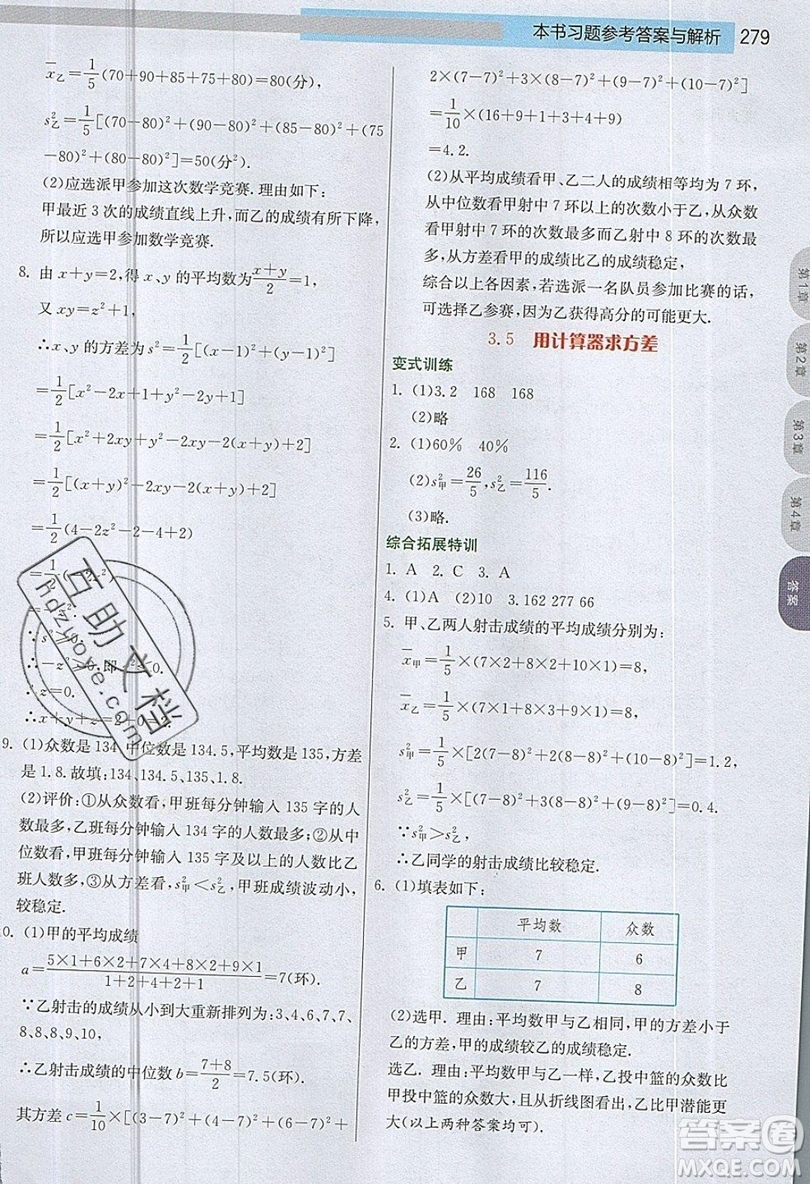 本书习题参考答案与解析 279
x̄乙=1/5(70+90+85+75+80)=80(分),
s²乙=1/5[(70-80)²+(90-80)²+(85-80)²+(75
-80)²+(80-80)²]=50(分²).
(2)应选派甲参加这次数学竞赛. 理由如下:
甲最近 3 次的成绩直线上升,而乙的成绩有所下降,
所以应选甲参加数学竞赛.
8. 由 x+y=2,得 x、y 的平均数为(x+y)/2=1,
又 xy=z²+1,
∴x、y 的方差为 s²=1/2[(x-1)²+(y-1)²]
=1/2[x²-2x+1+y²-2y+1]
=1/2[x²+2xy+y²-2xy-2(x+y)+2]
=1/2[(x+y)²-2xy-2(x+y)+2]
=1/2(4-2z²-2-4+2)
=1/2
∴
∴s²
∴-z² 即 ≤0.
∴z=0.
∴x+y+z=2.
9. (1)众数是 134,中位数是 134.5,平均数是 135,方差
是 1.8. 故填:134、134.5、135、1.8.
(2)评价:①从众数看,甲班每分钟输入 135 字的人
数最多,乙班每分钟输入 134 字的人数最多;②从中
位数看,甲班每分钟输入 135 字及以上的人数比乙
班人数多,③从方差看,s²甲<s²乙,甲班成绩波动小,
较稳定.
0. (1)甲的平均成绩
a=(5×1+6×2+7×4+8×2+9×1)/(1+2+4+2+1)=7(环).
∵乙射击的成绩从小到大重新排列为:3、4、6、7、7、
8、8、8、9、10,
∴乙射击成绩的中位数 b=(7+8)/2=7.5(环).
其方差 c=1/10×[(3-7)²+(4-7)²+(6-7)²+
2×(7-7)²+3×(8-7)²+(9-7)²+(10-7)²]
=1/10×(16+9+1+3+4+9)
=4.2.
(2)从平均成绩看甲、乙二人的成绩相等均为 7 环,
从中位数看甲射中 7 环以上的次数小于乙,从众数
看甲射中 7 环的次数最多而乙射中 8 环的次数最
多,从方差看甲的成绩比乙的成绩稳定,
综合以上各因素,若选派一名队员参加比赛的话,
可选择乙参赛,因为乙获得高分的可能更大.
3.5 用计算器求方差
变式训练
1. (1)3.2 168 168
(2)略
2. (1)60% 40%
(2)s²甲=26/5,s²乙=116/5.
(3)略.
综合拓展特训
1. A 2. C 3. A
4. (1)A (2)10 3.162 277 66
5. 甲、乙两人射击成绩的平均成绩分别为:
x̄甲=1/5×(7×2+8×2+10×1)=8,
x̄乙=1/5×(7×1+8×3+9×1)=8,
s²甲=1/5×[2(7-8)²+2(8-8)²+(10-8)²]=1.2,
s²乙=1/5×[(7-8)²+3(8-8)²+(9-8)²]=0.4.
∵s²甲>s²乙,
∴乙同学的射击成绩比较稳定.
6. (1)填表如下:
平均数 众数
甲 7 6
乙 7 8
(2)选甲. 理由:平均数甲与乙相同,甲的方差小于
乙的方差,甲的成绩较乙的成绩稳定.
选乙. 理由:平均数甲与乙相同,乙投中篮的众数比
甲投中篮的众数大,且从折线图看出,乙比甲潜能更
大(以上两种答案均可).
第1章
第2章
第3章
第4章
答案
互助文档
hdzuoye.com
答案圈
MXQE.COM